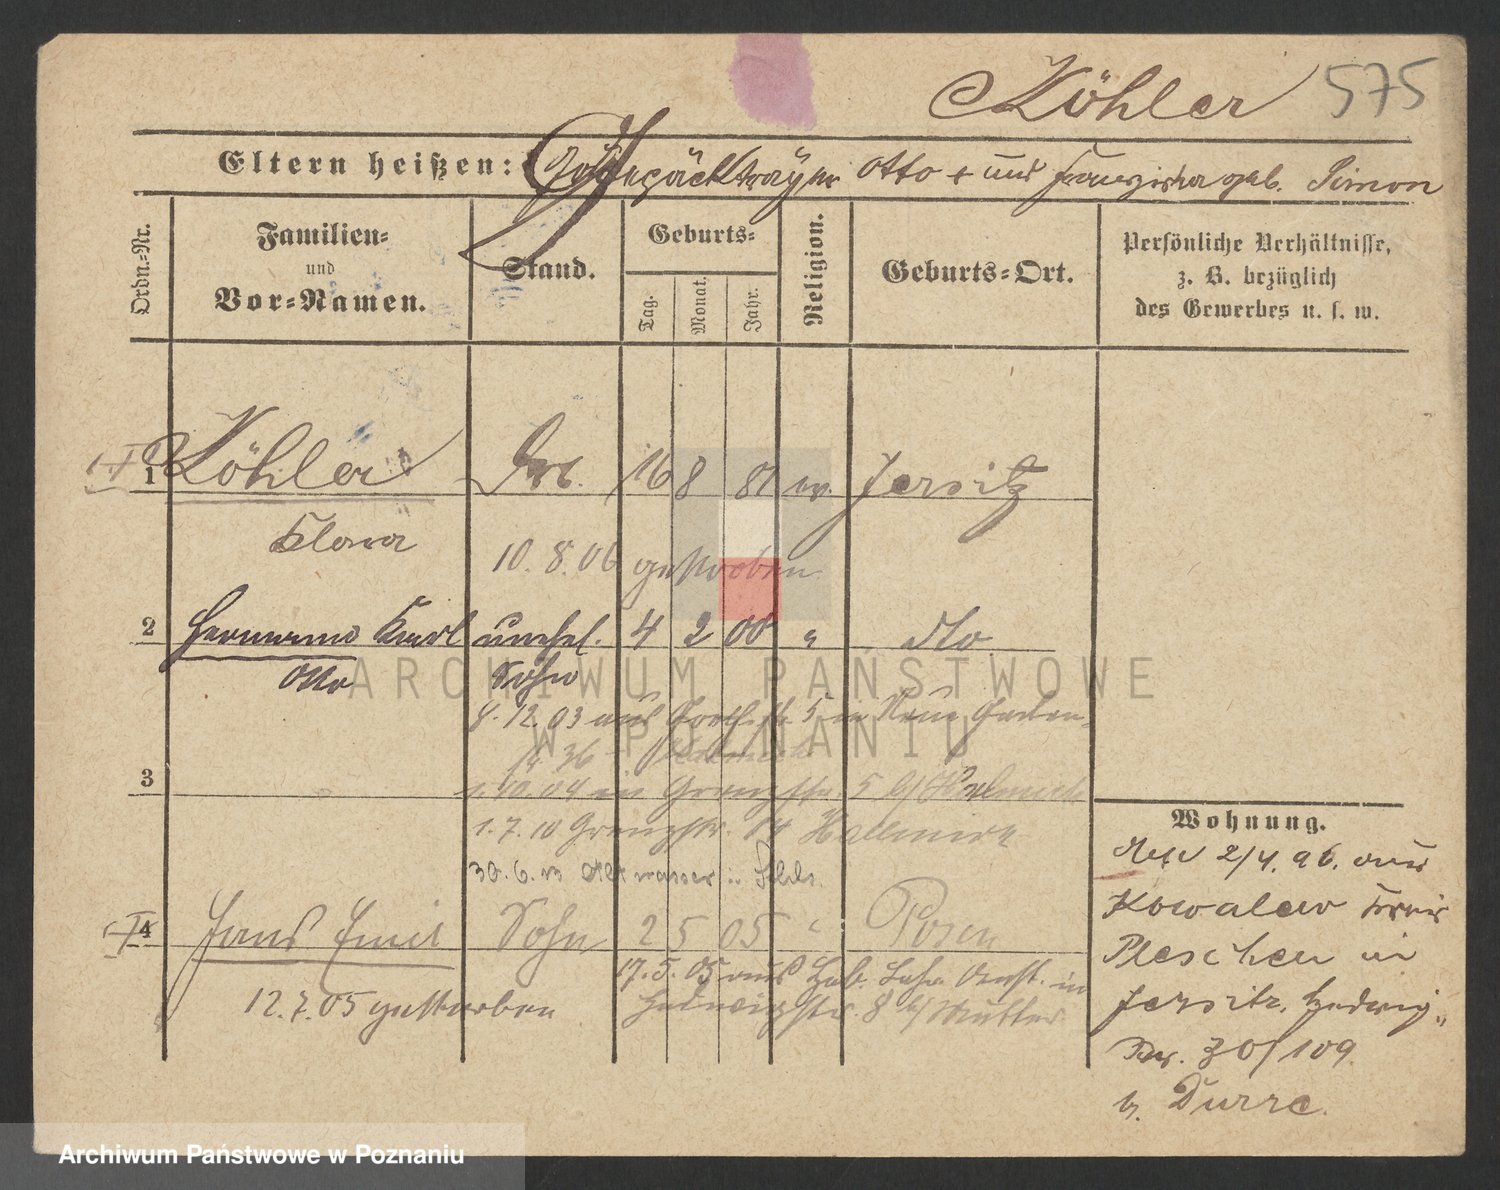 Köhler 575
Eltern heißen: Gepäckträger Otto + und Franziska geb. Simon
Ordn.-Nr.
Familien-
und
Vor-Namen.
Stand.
Geburts-
Tag.
Monat.
Jahr.
Religion.
Geburts-Ort.
Persönliche Verhältnisse,
z. B. bezüglich
des Gewerbes u. s. w.
1 Köhler Arb. 16 8 81 ev. Jersitz
Klara
10. 8. 06 gestorben
2 Hermann Karl unehel. 4 2 00 " dto
Otto Sohn
ARCHIWUM PAŃSTWOWE
8. 12. 03 aus 5 in Neue Garten-
W POZNANIU
str 36
3
1. 10. 04 in Grenzstr. 5 b/
1. 7. 10 Grenzstr. 14
30. 6. Altwasser in Schles.
Wohnung.
2/4. 96. aus
Kowalew Kreis
Pleschen in
Jersitz, Hedwig-
str. 30/109.
b. Durre.
4 Hans Emil Sohn 2 5 05 " Posen
17. 5. 05 aus in
12. 7. 05 gestorben
Hedwigstr. 8 b/ Mutter
Archiwum Państwowe w Poznaniu